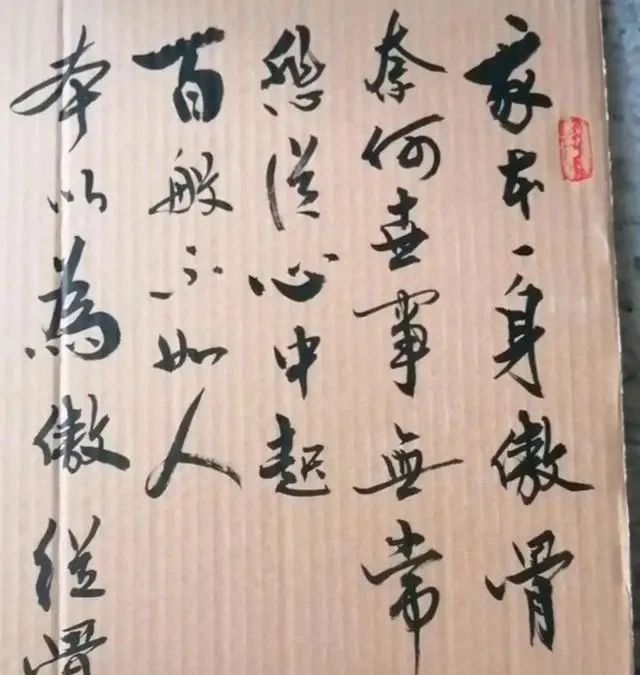 我本一身傲骨
奈何世事無常
愁從心中起
百般不如人
本以為傲從骨